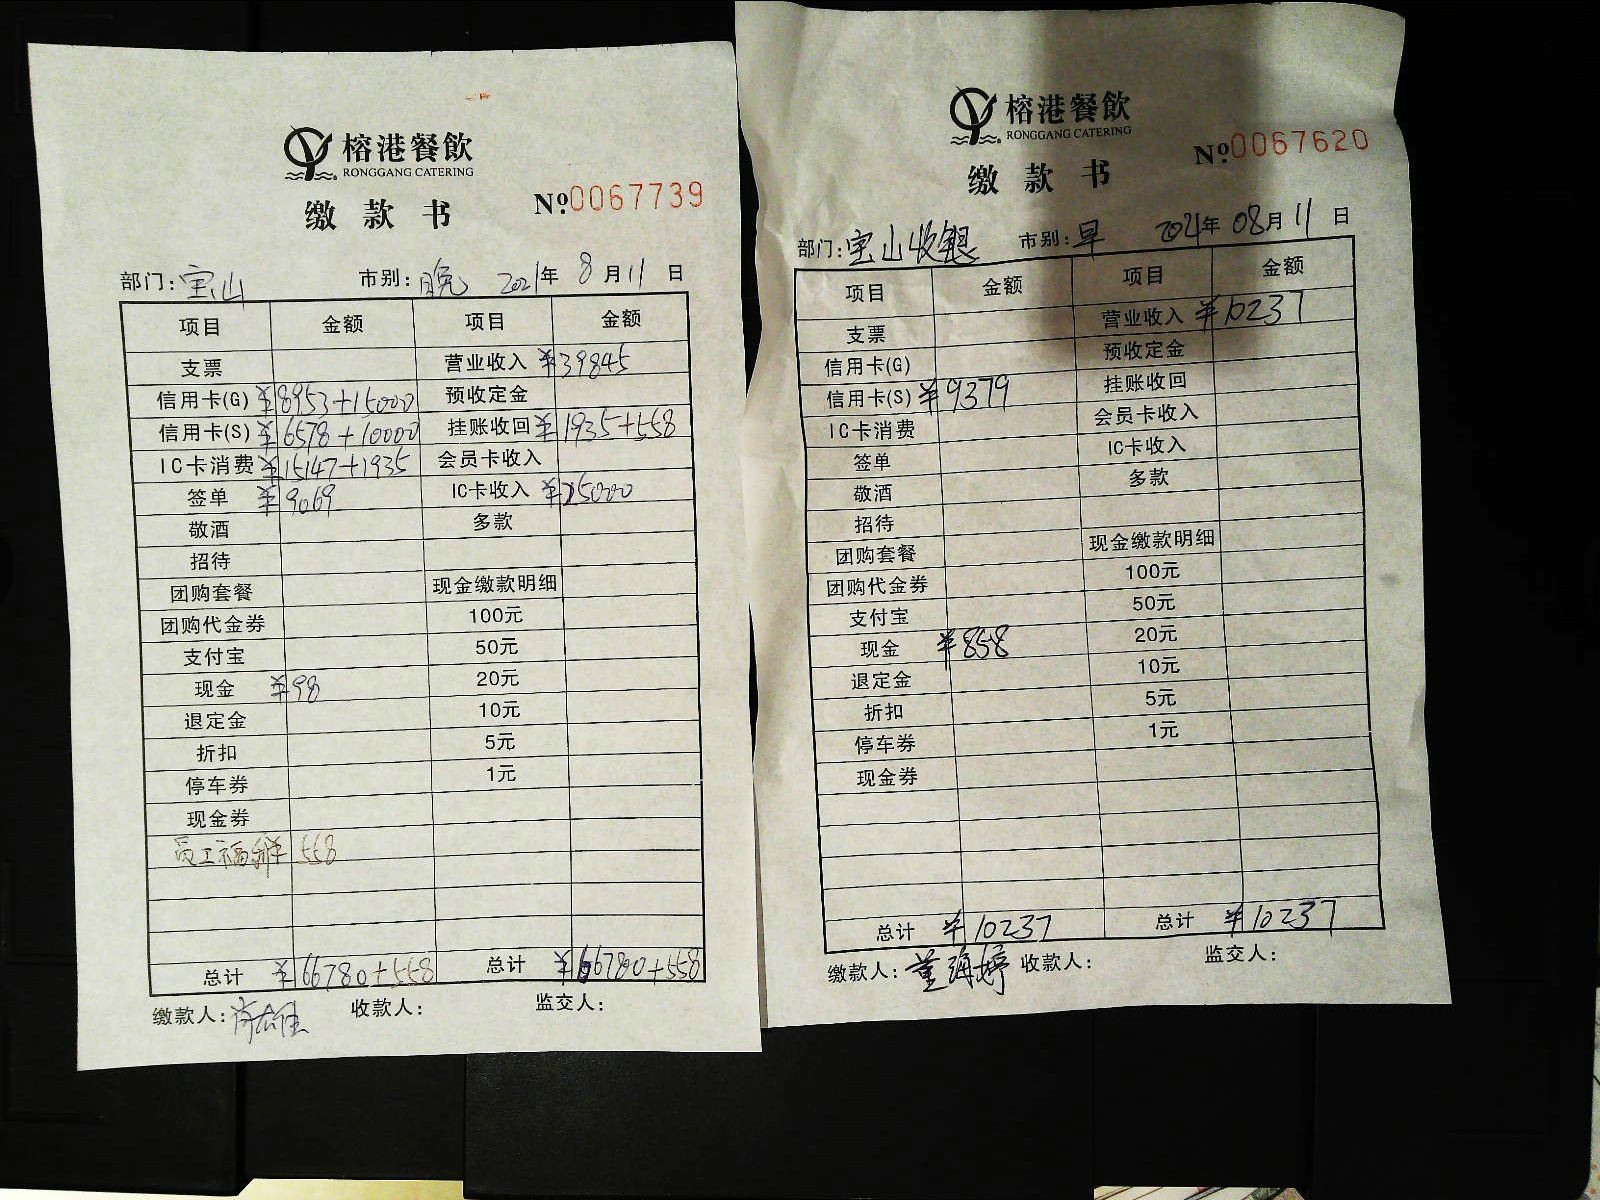 榕港餐飲
RONGGANG CATERING
缴款书
№0067739
部门:宝山 市别:晚 2021年8月11日
项目 金额 项目 金额
支票 营业收入 ¥39845
信用卡(G) ¥8953+15000 预收定金
信用卡(S) ¥6578+10000 挂账收回 ¥1935+558
IC卡消费 ¥15147+1935 会员卡收入
签单 ¥9069 IC卡收入 ¥25000
敬酒 多款
招待
团购套餐 现金缴款明细
团购代金券 100元
支付宝 50元
现金 ¥98 20元
退定金 10元
折扣 5元
停车券 1元
现金券
员工福利 558
总计 ¥66780+558 总计 ¥66780+558
缴款人: 收款人: 监交人:
榕港餐飲
RONGGANG CATERING
缴款书
№0067620
部门:宝山收银 市别:早 2021年08月11日
项目 金额 项目 金额
支票 营业收入 ¥10237
信用卡(G) 预收定金
信用卡(S) ¥9379 挂账收回
IC卡消费 会员卡收入
签单 IC卡收入
敬酒 多款
招待
团购套餐 现金缴款明细
团购代金券 100元
支付宝 50元
现金 ¥858 20元
退定金 10元
折扣 5元
停车券 1元
现金券
总计 ¥10237 总计 ¥10237
缴款人:董海婷 收款人: 监交人: